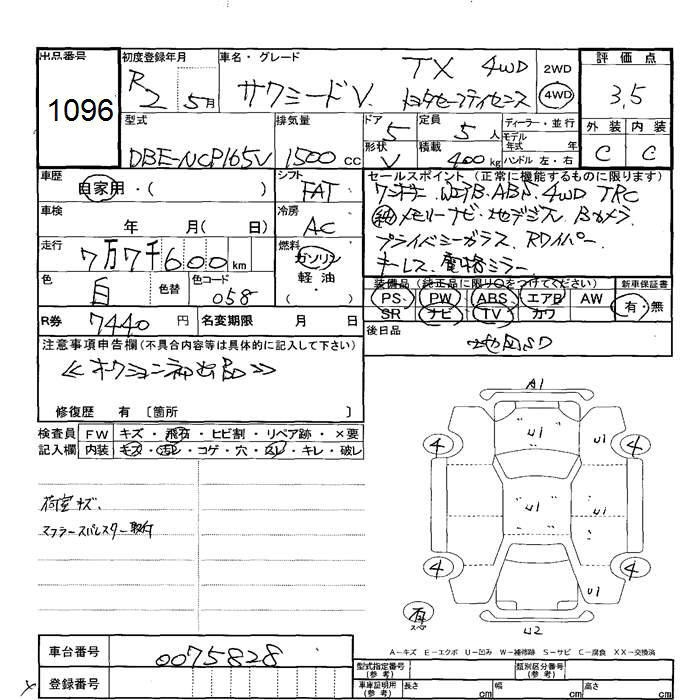 出品番号 初度登録年月 車名・グレード 評価点
1096
R2 5月
TX 4WD
サクシードV. トヨタセーフティセンス
2WD
4WD
3,5
外装 内装
C C
型式 排気量 ドア 定員 ディーラー・並行
DBE-NCP165V 1500cc 5 5人
モデル年式 年
形状 積載 ハンドル 左・右
V 400kg
車歴 シフト セールスポイント (正常に機能するものに限ります)
自家用・( ) FAT
ワンオーナー. WエアB. ABS. 4WD TRC
車検 冷房
年 月( 日) AC
純メモリーナビ・地デジ Bカメラ
プライバシーガラス. Rワイパー.
走行 燃料
7万7千600km ガソリン
軽油
キーレス. 電格ミラー.
色 色替 色コード
白 058
装備品 (純正品に限り○をつけてください) 新車保証書
PS PW ABS エアB AW 有・無
SR ナビ TV カワ
R券 7440円 名変期限 月 日
後日品
注意事項申告欄(不具合内容等は具体的に記入して下さい)
修復歴 有 〔箇所 〕
検査員 FW キズ・飛石・ヒビ割・リペア跡・×要
記入欄 内装 キズ・汚レ・コゲ・穴・スレ・キレ・破レ
荷室キズ.
取付
A1
U1 U1
4 4
U1 U1
4 4
U1
有 スペア
U2
A-キズ E-エクボ U-凹み W-補修跡 S-サビ C-腐食 XX-交換済
車台番号 0075828
登録番号
型式指定番号(参考) 類別区分番号(参考)
車庫証明用(参考) 長さ cm 幅 cm 高さ cm